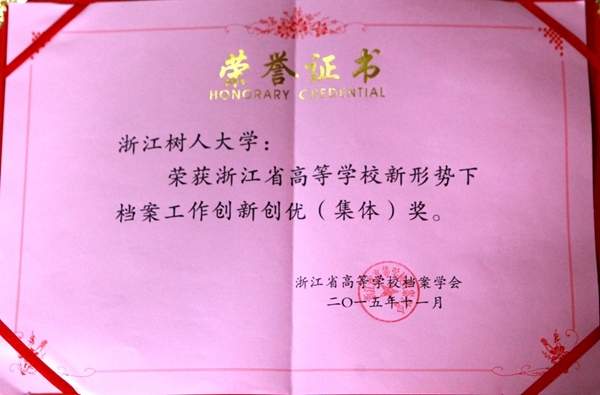 荣誉证书
HONORARY CREDENTIAL
浙江树人大学：
荣获浙江省高等学校新形势下
档案工作创新创优（集体）奖。
浙江省高等学校档案学会
二〇一五年十一月